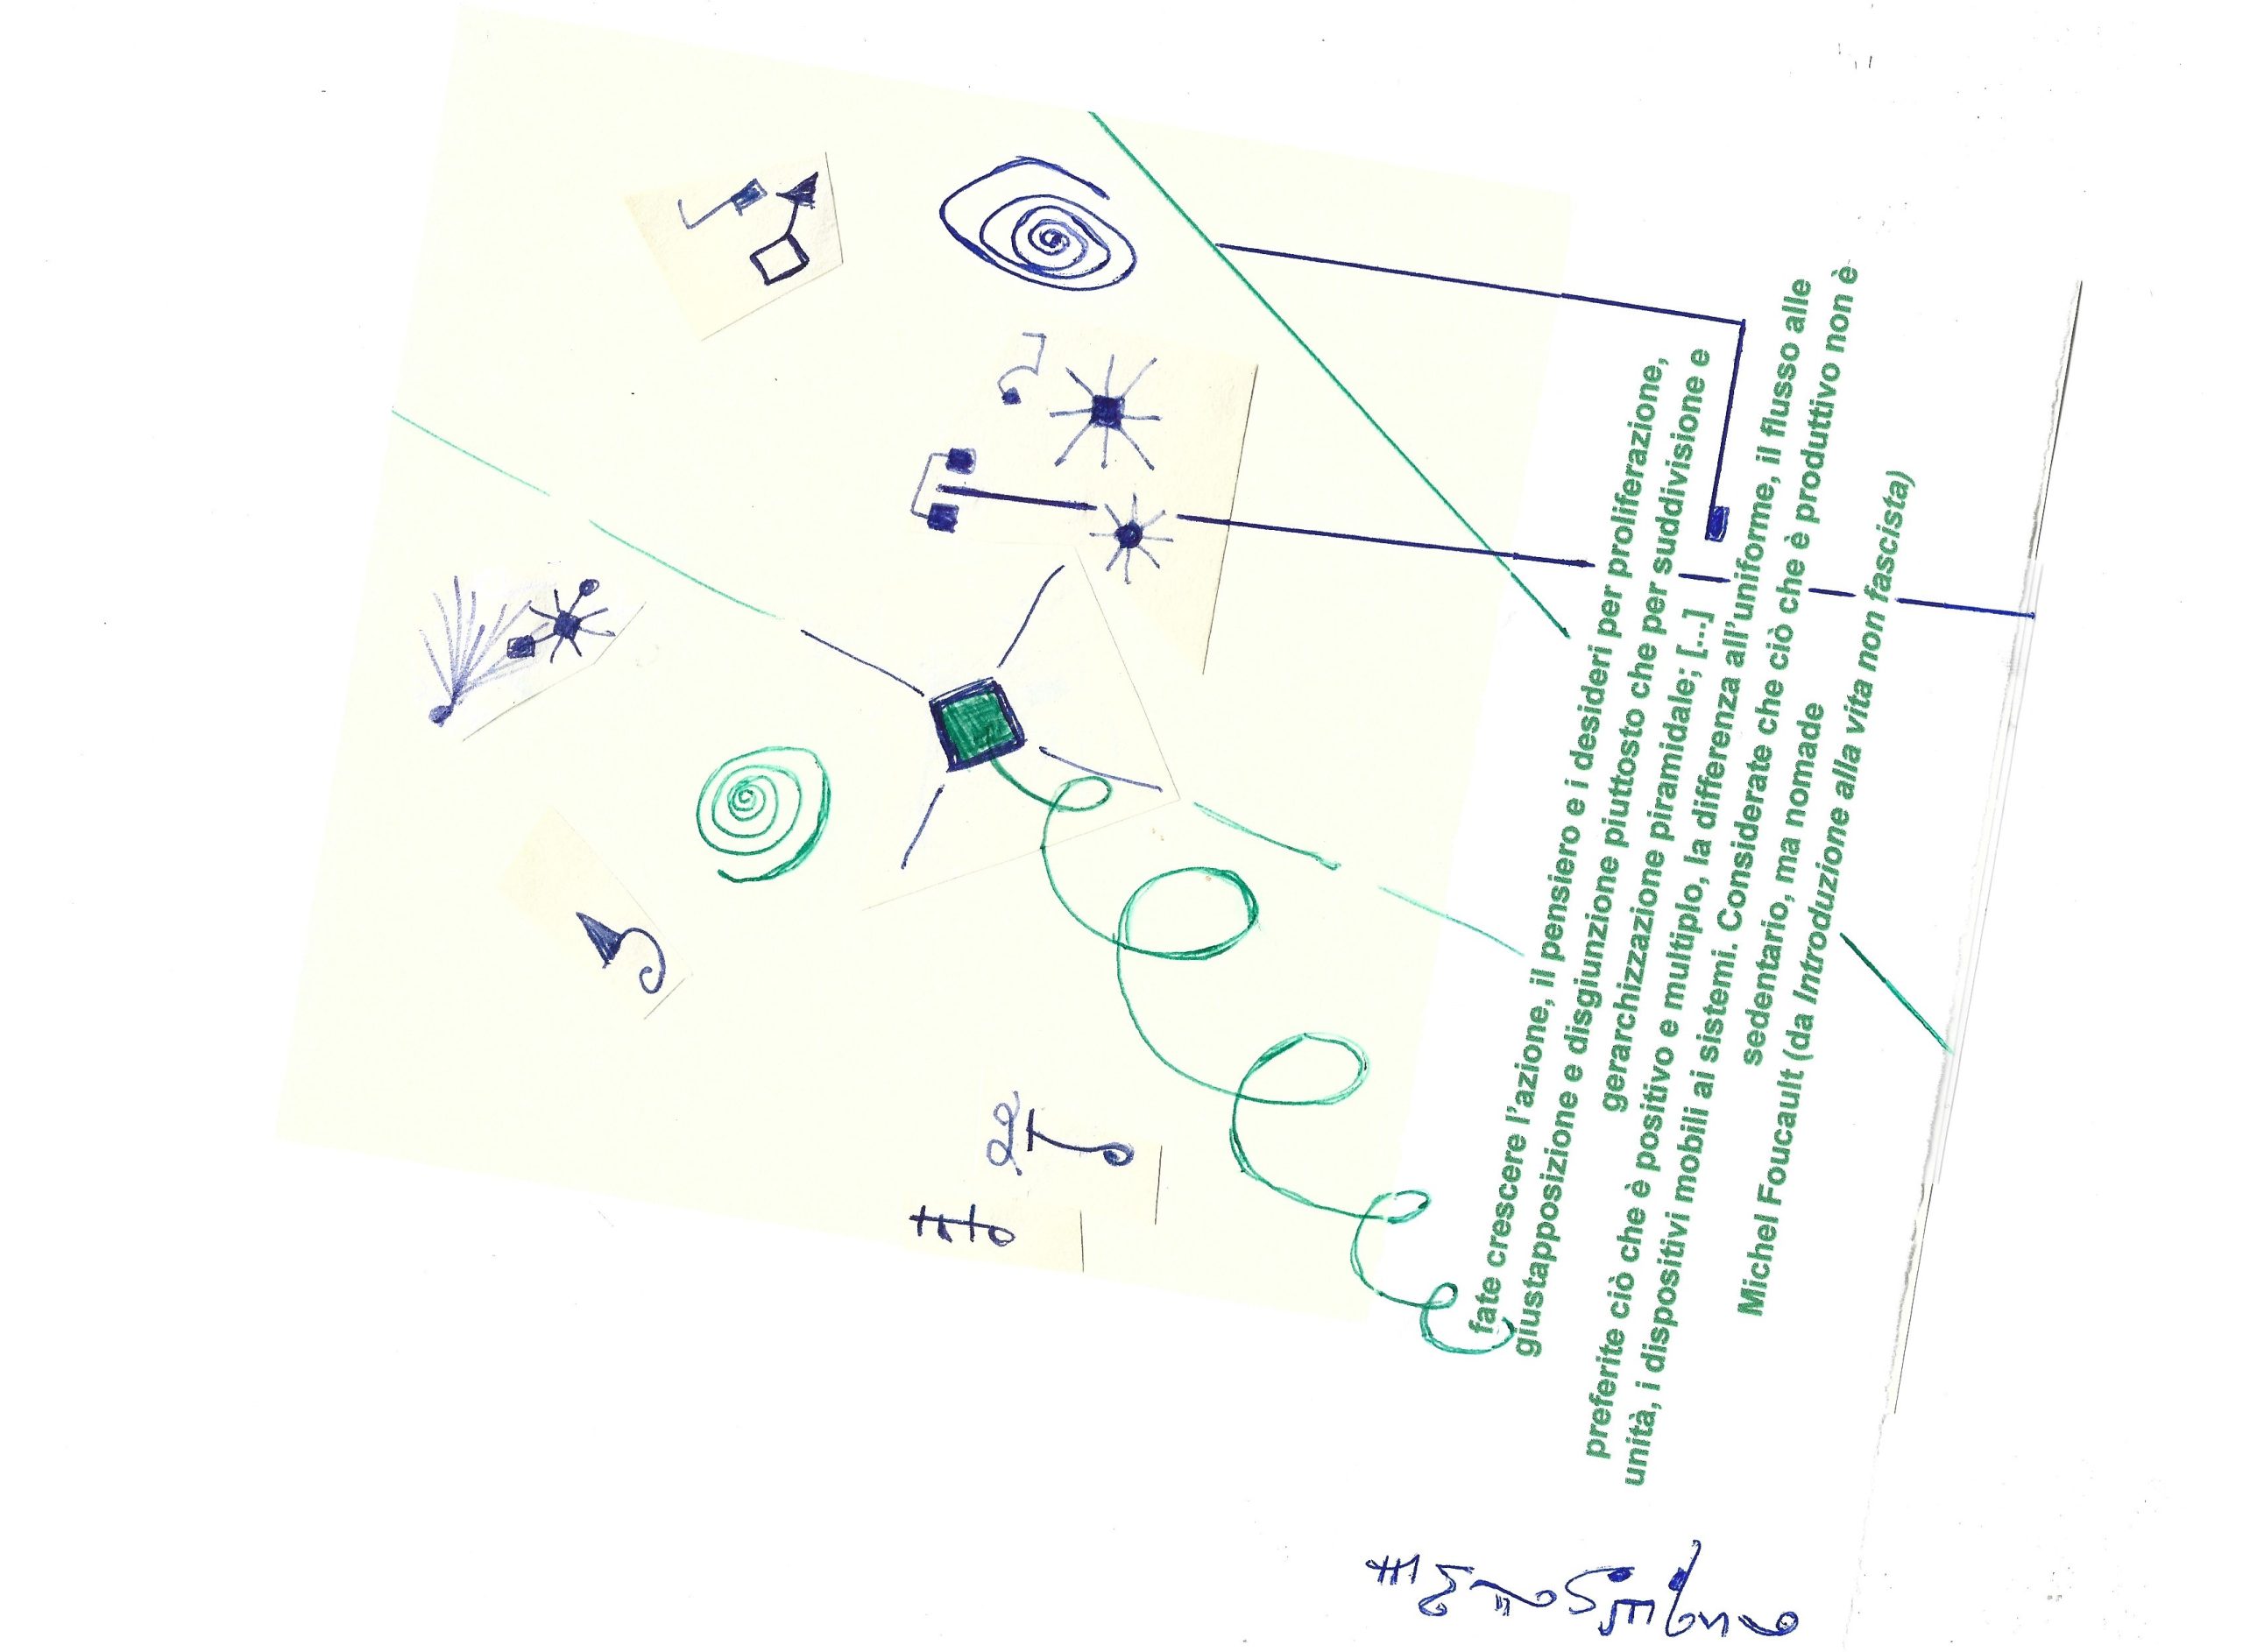 fate crescere l'azione, il pensiero e i desideri per proliferazione,
giustapposizione e disgiunzione piuttosto che per suddivisione e
gerarchizzazione piramidale; [...]
preferite ciò che è positivo e multiplo, la differenza all'uniforme, il flusso alle
unità, i dispositivi mobili ai sistemi. Considerate che ciò che è produttivo non è
sedentario, ma nomade
Michel Foucault (da Introduzione alla vita non fascista)